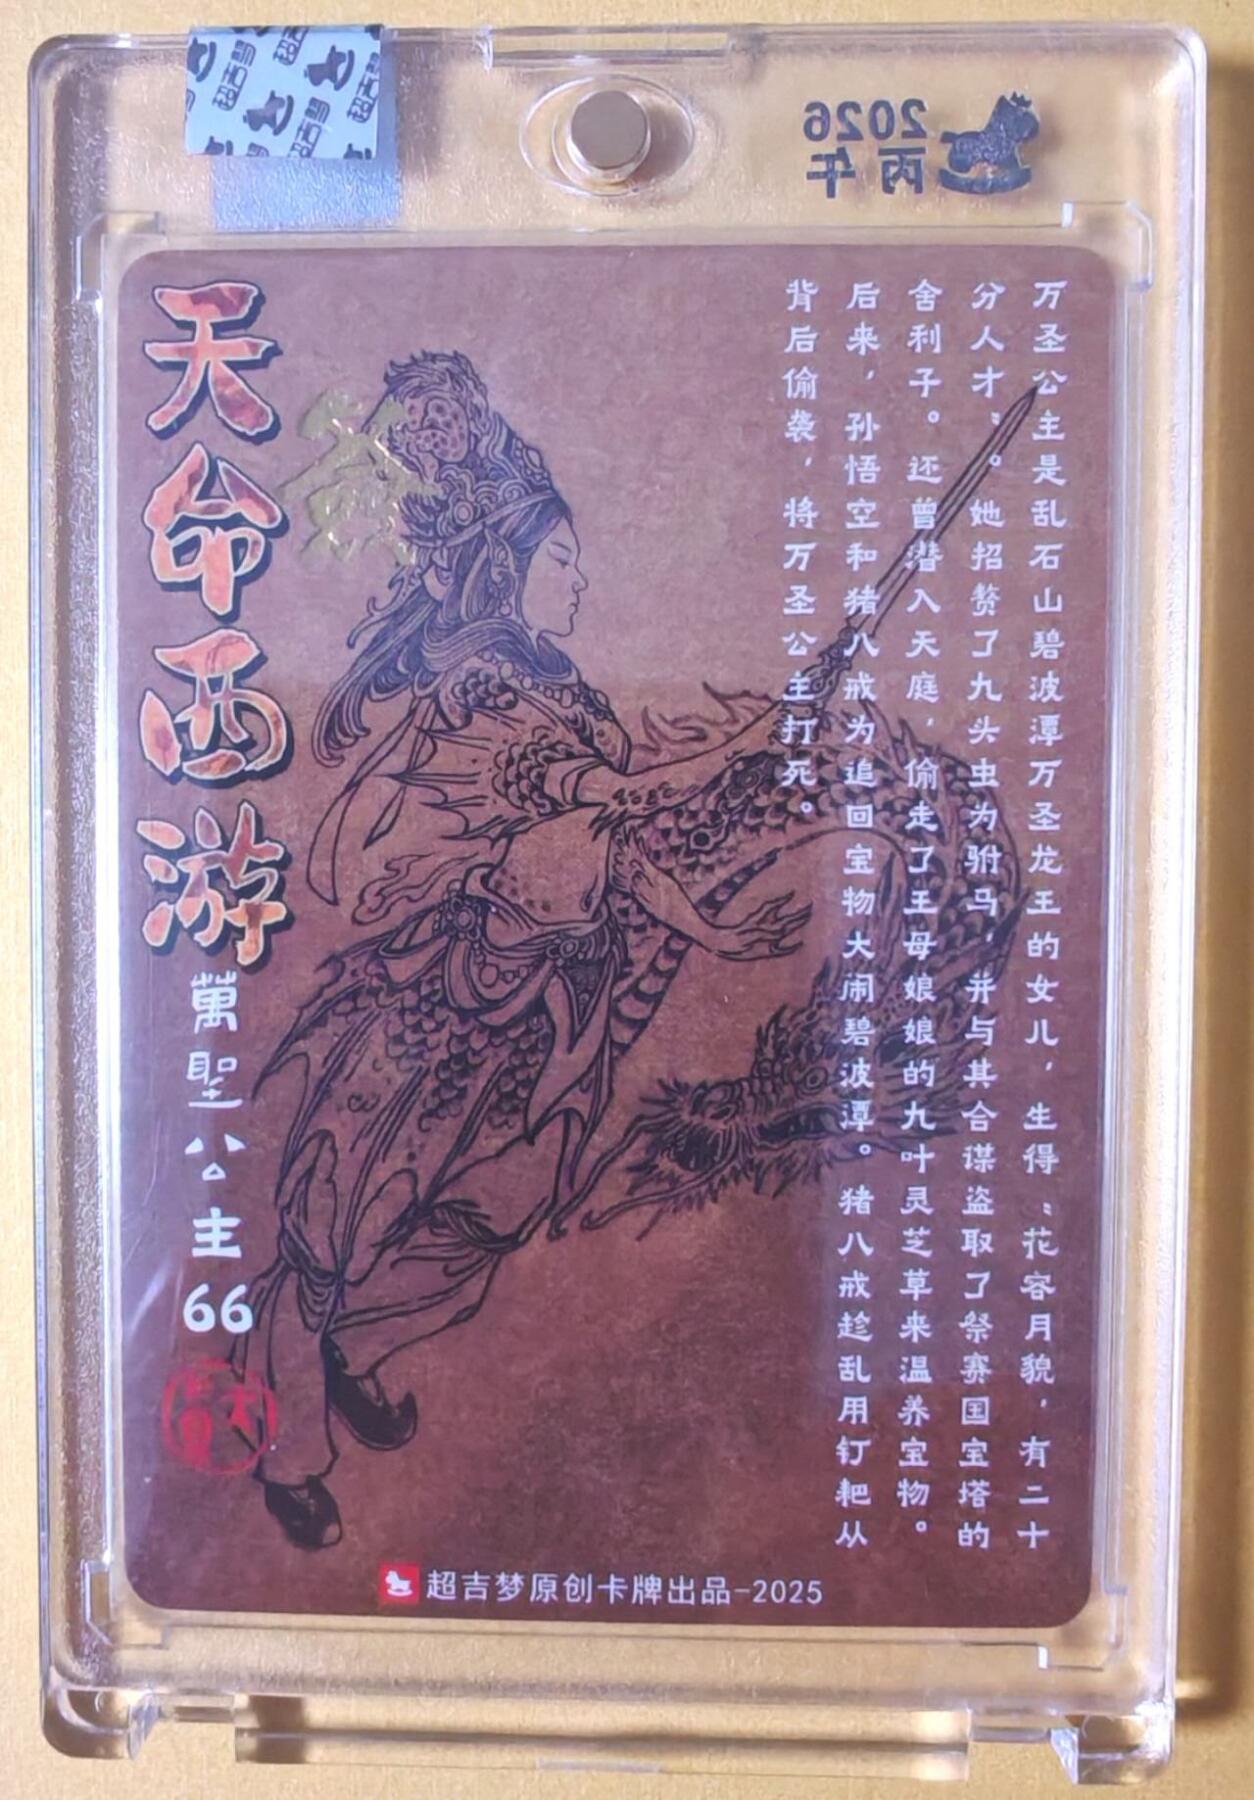 2026
丙午
超吉梦
万圣公主是乱石山碧波潭万圣龙王的女儿，生得“花容月貌，有二十
分人才”。她招赘了九头虫为驸马，并与其合谋盗取了祭赛国宝塔的
舍利子。还曾潜入天庭，偷走了王母娘娘的九叶灵芝草来温养宝物。
后来，孙悟空和猪八戒为追回宝物大闹碧波潭。猪八戒趁乱用钉耙从
背后偷袭，将万圣公主打死。
天命西游
萬聖公主66
超吉梦原创卡牌出品-2025